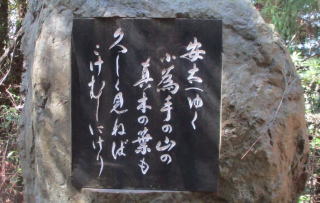 安太へゆく
小為手の山の
真木の葉も
久しく見ねば
こけむしにけり